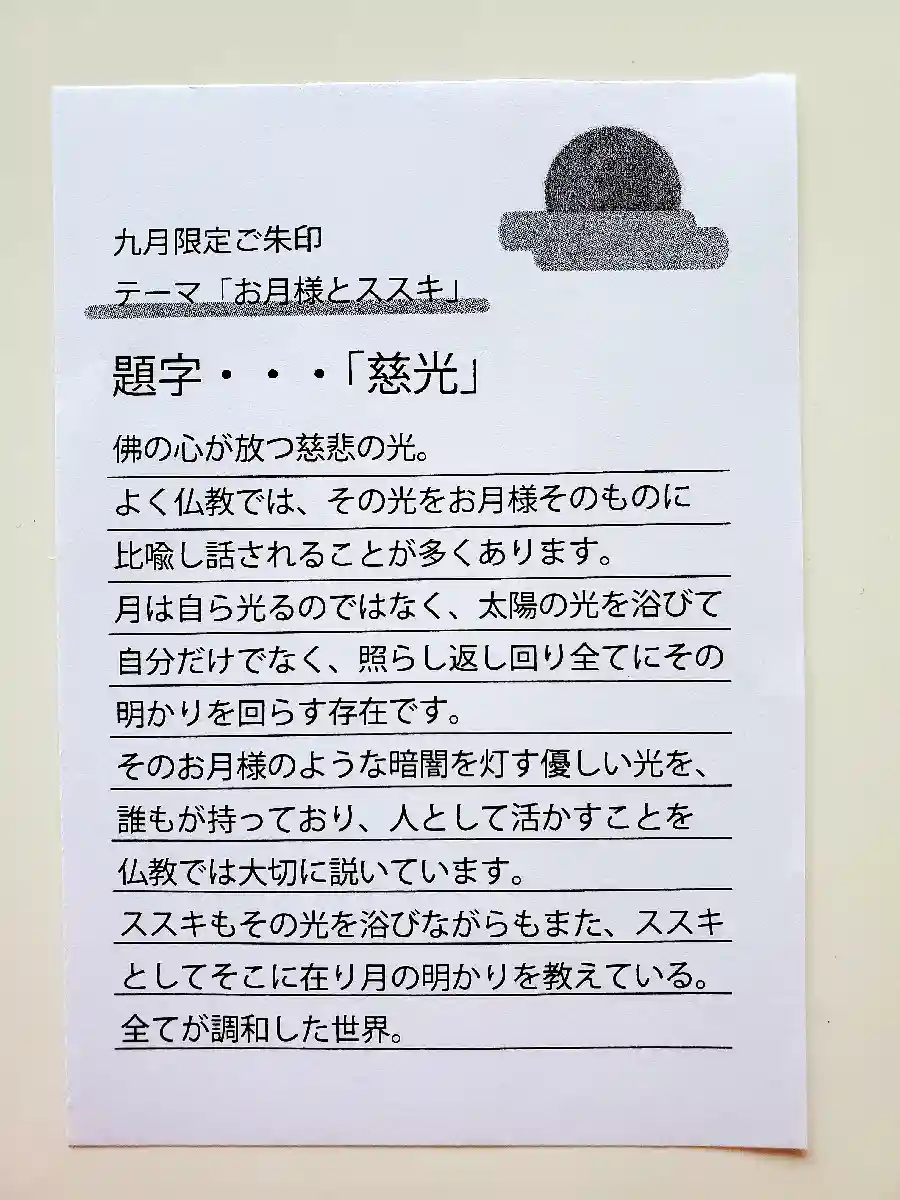 九月限定ご朱印
テーマ「お月様とススキ」
題字・・・「慈光」
佛の心が放つ慈悲の光。
よく仏教では、その光をお月様そのものに
比喩し話されることが多くあります。
月は自ら光るのではなく、太陽の光を浴びて
自分だけでなく、照らし返し回り全てにその
明かりを回らす存在です。
そのお月様のような暗闇を灯す優しい光を、
誰もが持っており、人として活かすことを
仏教では大切に説いています。
ススキもその光を浴びながらもまた、ススキ
としてそこに在り月の明かりを教えている。
全てが調和した世界。